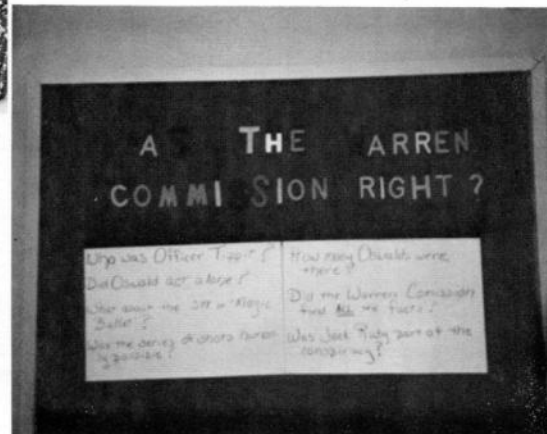 AS THE ARREN
COMMISSION RIGHT?
Who was Officer Tippit?
Did Oswald act alone?
What about the or Magic
Bullet?
Was the series of shots human
ly possible?
How many Oswalds were
there?
Did the Warren Comission
find ALL the facts?
Was Jack Ruby part of the
conspiracy?